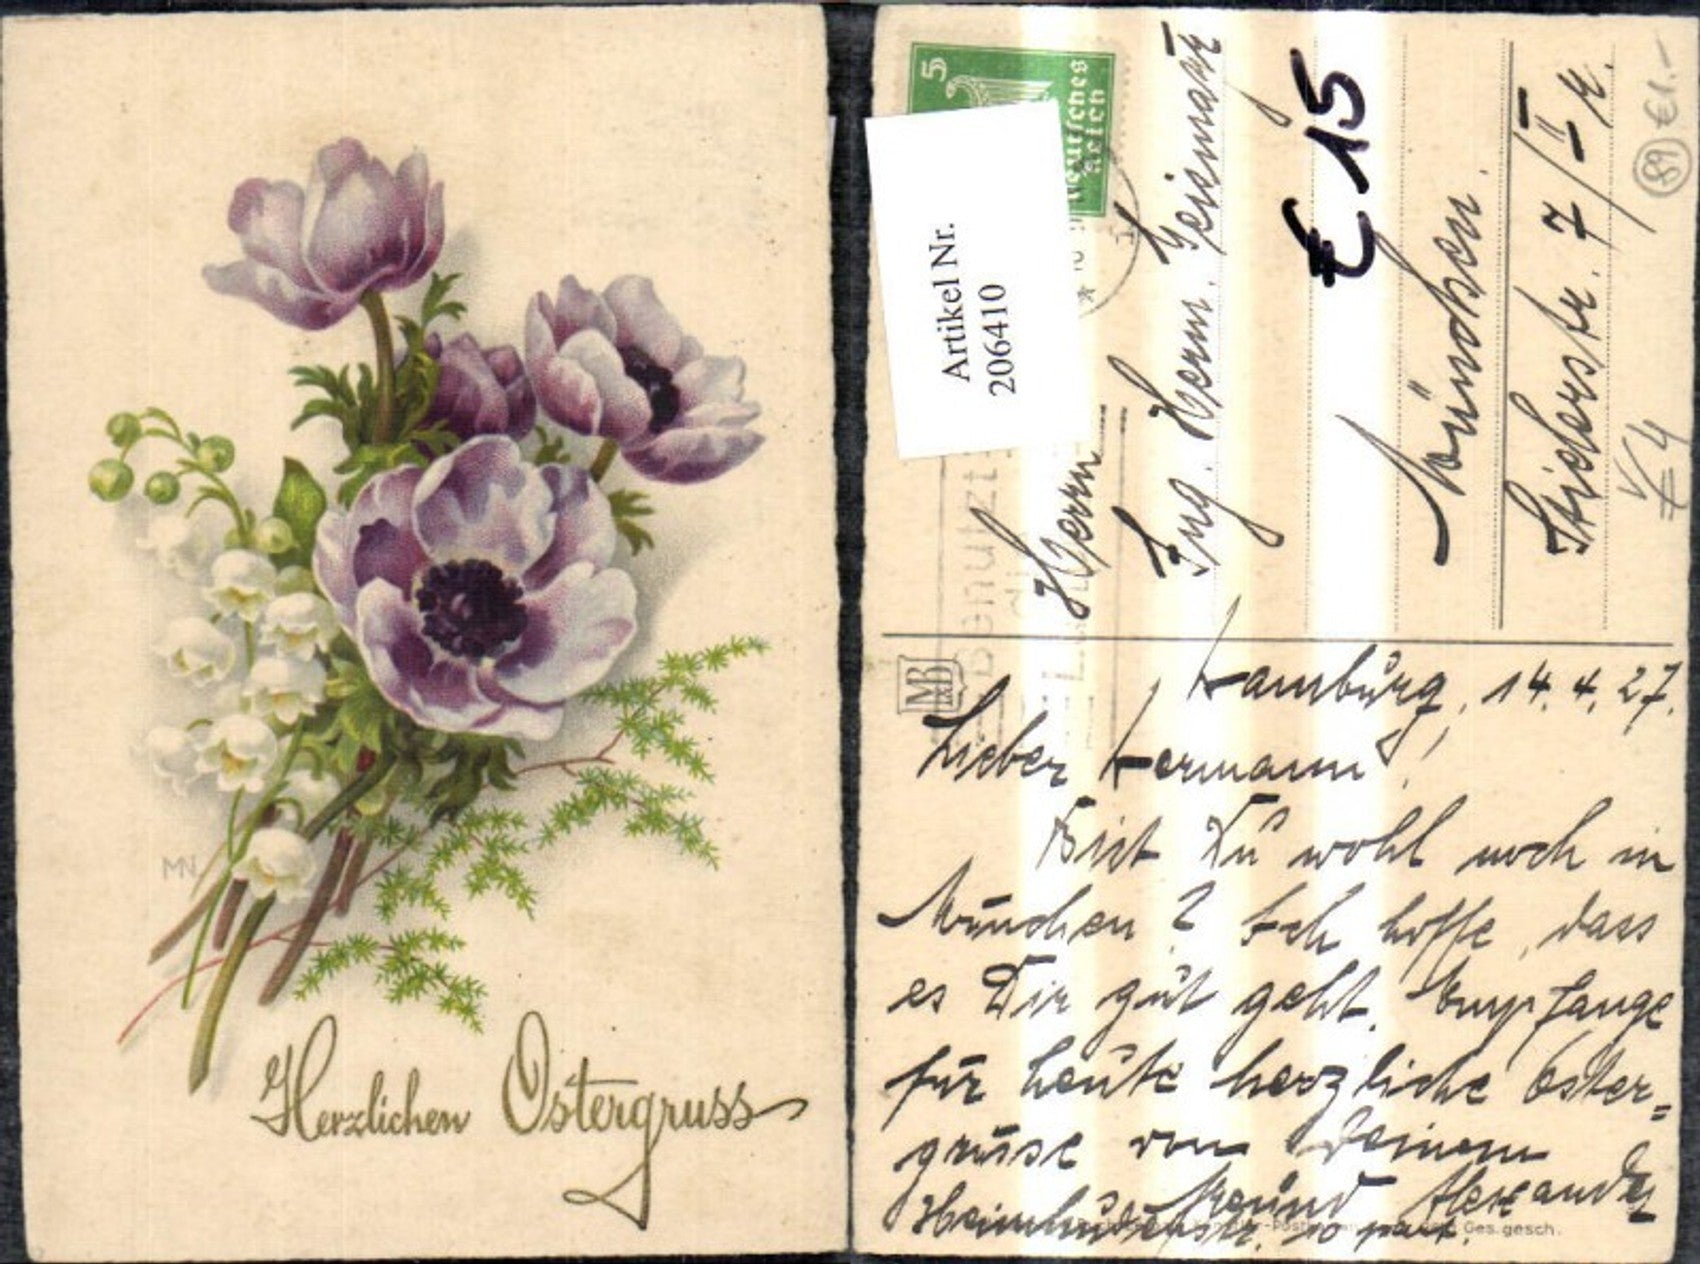 MN
Herzlichen Ostergruss
5
Deutsches
Reich
Artikel Nr.
206410
Benutzt
Herrn
Ing. Herm. Geismar
€ 15
München.
Stielerstr. 7/II r.
89 €1.-
V 4
MB
Hamburg, 14.4.27.
Lieber Hermann!
Bist Dü wohl noch in
München? Ich hoffe, dass
es Dir güt geht. Empfange
für heüte herzliche Oster=
grüsse von Deinem
Freünd Alexander
Heimhüderstr. 10 part.
Ges. gesch.